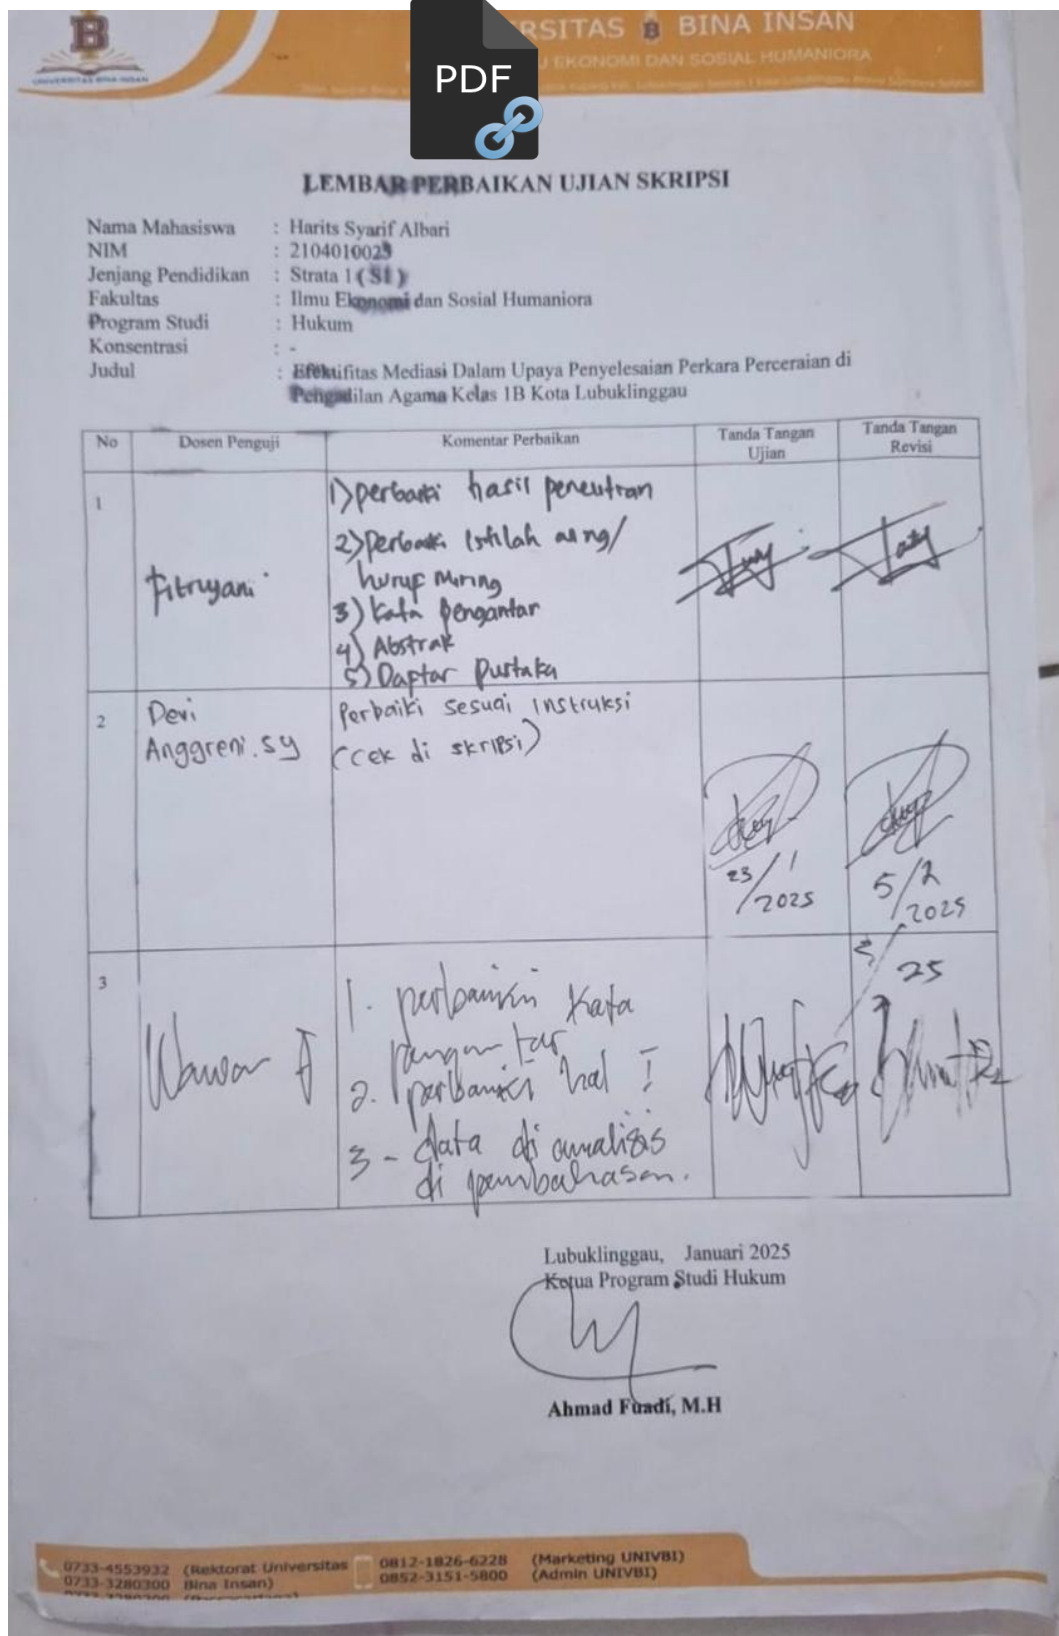 PDF
RSITAS BINA INSAN
EKONOMI DAN SOSIAL HUMANIORA
UNIVERSITAS BINA INSAN
LEMBAR PERBAIKAN UJIAN SKRIPSI
Nama Mahasiswa : Harits Syarif Albari
NIM : 2104010023
Jenjang Pendidikan : Strata 1 (S1)
Fakultas : Ilmu Ekonomi dan Sosial Humaniora
Program Studi : Hukum
Konsentrasi : -
Judul : Efektifitas Mediasi Dalam Upaya Penyelesaian Perkara Perceraian di
Pengadilan Agama Kelas 1B Kota Lubuklinggau
No Dosen Penguji Komentar Perbaikan Tanda Tangan Ujian Tanda Tangan Revisi
1 Fitryani
1) perbaiki hasil penelitian
2) perbaiki istilah asing/
huruf miring
3) kata pengantar
4) Abstrak
5) Daptar Pustaka
2 Devi
Anggreni.sy
Perbaiki sesuai instruksi
(cek di skripsi)
23/1
/2025
5/2
/2025
3 Wawan
25
1. perbaiki kata
pengantar
2. perbaiki hal I
3 - data di analisis
di pembahasan.
Lubuklinggau, Januari 2025
Ketua Program Studi Hukum
Ahmad Fuadi, M.H
0733-4553932 (Rektorat Universitas
0733-3280300 Bina Insan)
0812-1826-6228 (Marketing UNIVBI)
0852-3151-5800 (Admin UNIVBI)